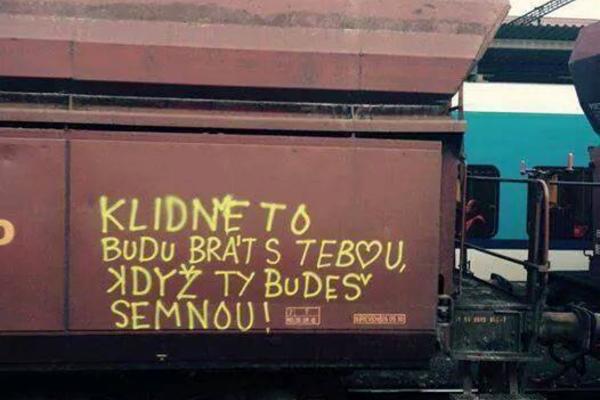 KLIDNĚ TO
BUDU BRÁT S TEB♡U,
KDYŽ TY BUDEŠ
SEMNOU!